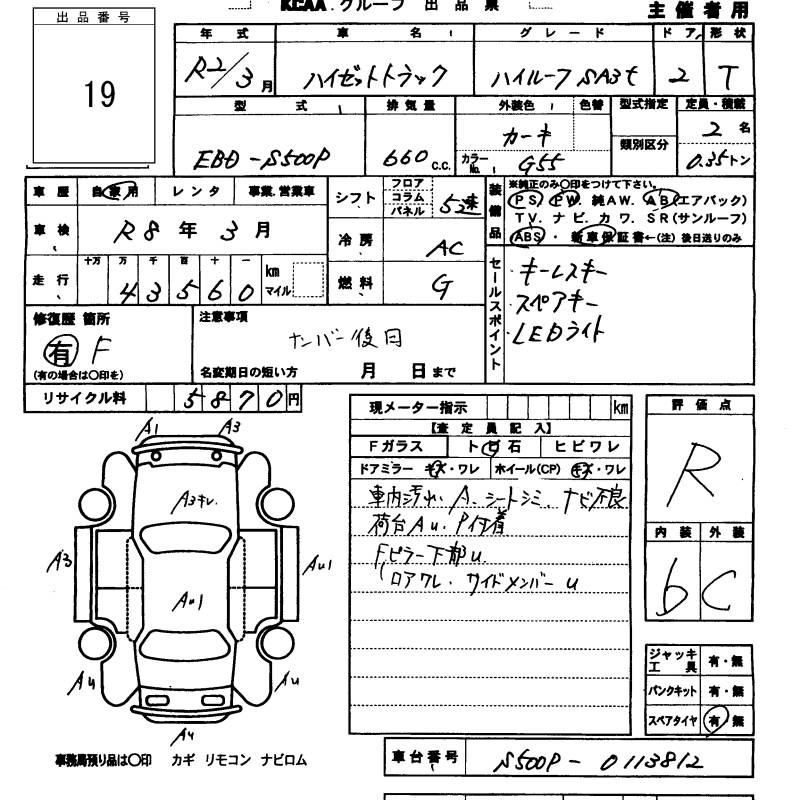 KCAA.グループ 出品票
主催者用
出品番号
19
年式 車名 グレード ドア 形状
R2/3月 ハイゼットトラック ハイルーフ SA3t 2 T
型式 排気量 外装色 色替 型式指定 定員・積載
EBD-S500P 660 C.C. カーキ 類別区分 2名
カラーNo. G55 0.35トン
車歴 自家用 レンタ 事業.営業車
車検 R8年3月
走行 十万 万 千 百 十 一 km マイル
4 3 5 6 0
シフト フロア コラム パネル 5速
冷房 AC
燃料 G
装備品 ※純正のみ〇印をつけて下さい。
PS PW 純AW. AB(エアバック)
TV. ナビ. カワ. SR(サンルーフ)
ABS・新車保証書←(注) 後日送りのみ
セールスポイント
キーレスキー
スペアキー
LEDライト
修復歴 箇所
有 F
(有の場合は〇印を)
注意事項
ナンバー後日
名変期日の短い方 月 日まで
リサイクル料 5870円
現メーター指示 km
【査定員記入】
Fガラス ト ビ 石 ヒビワレ
ドアミラー キズ・ワレ ホイール(CP) キズ・ワレ
車内汚れ. A. シートシミ ナビ不良
荷台Au. P付着
Fピラー下部u.
ロアワレ. サイドメンバーu
評価点
R
内装 外装
b C
ジャッキ 工具 有・無
パンクキット 有・無
スペアタイヤ 有・無
A1 A3
A3キレ.
A3 Au1
Au1
Au Au
A4
事務局預り品は〇印 カギ リモコン ナビロム
車台番号 S500P-0113812